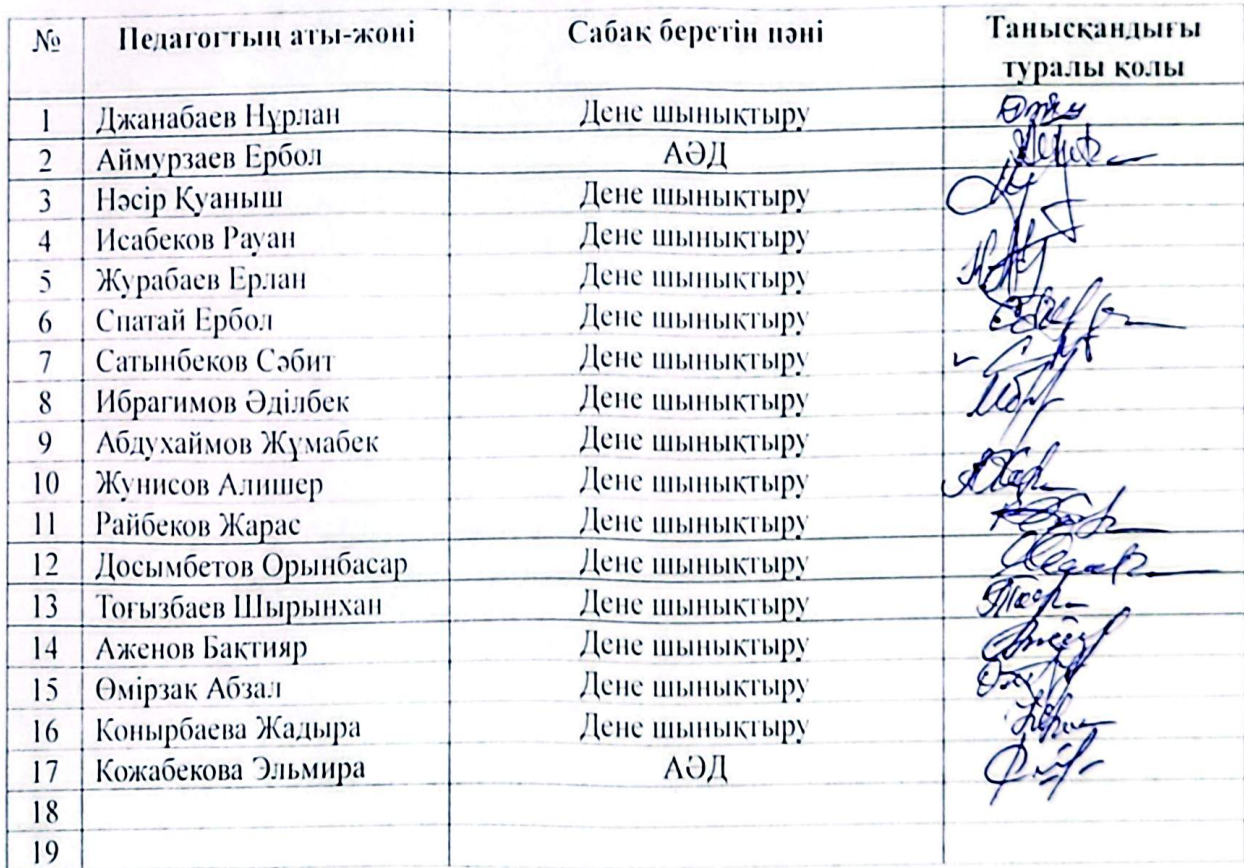 № Педагогтың аты-жөні Сабақ беретін пәні Танысқандығы
туралы қолы
1 Джанабаев Нұрлан Дене шынықтыру
2 Аймурзаев Ербол АӘД
3 Нәсір Қуаныш Дене шынықтыру
4 Исабеков Рауан Дене шынықтыру
5 Журабаев Ерлан Дене шынықтыру
6 Спатай Ербол Дене шынықтыру
7 Сатынбеков Сәбит Дене шынықтыру
8 Ибрагимов Әділбек Дене шынықтыру
9 Абдухаймов Жұмабек Дене шынықтыру
10 Жунисов Алишер Дене шынықтыру
11 Райбеков Жарас Дене шынықтыру
12 Досымбетов Орынбасар Дене шынықтыру
13 Тоғызбаев Шырынхан Дене шынықтыру
14 Аженов Бақтияр Дене шынықтыру
15 Өмірзақ Абзал Дене шынықтыру
16 Конырбаева Жадыра Дене шынықтыру
17 Кожабекова Эльмира АӘД
18
19